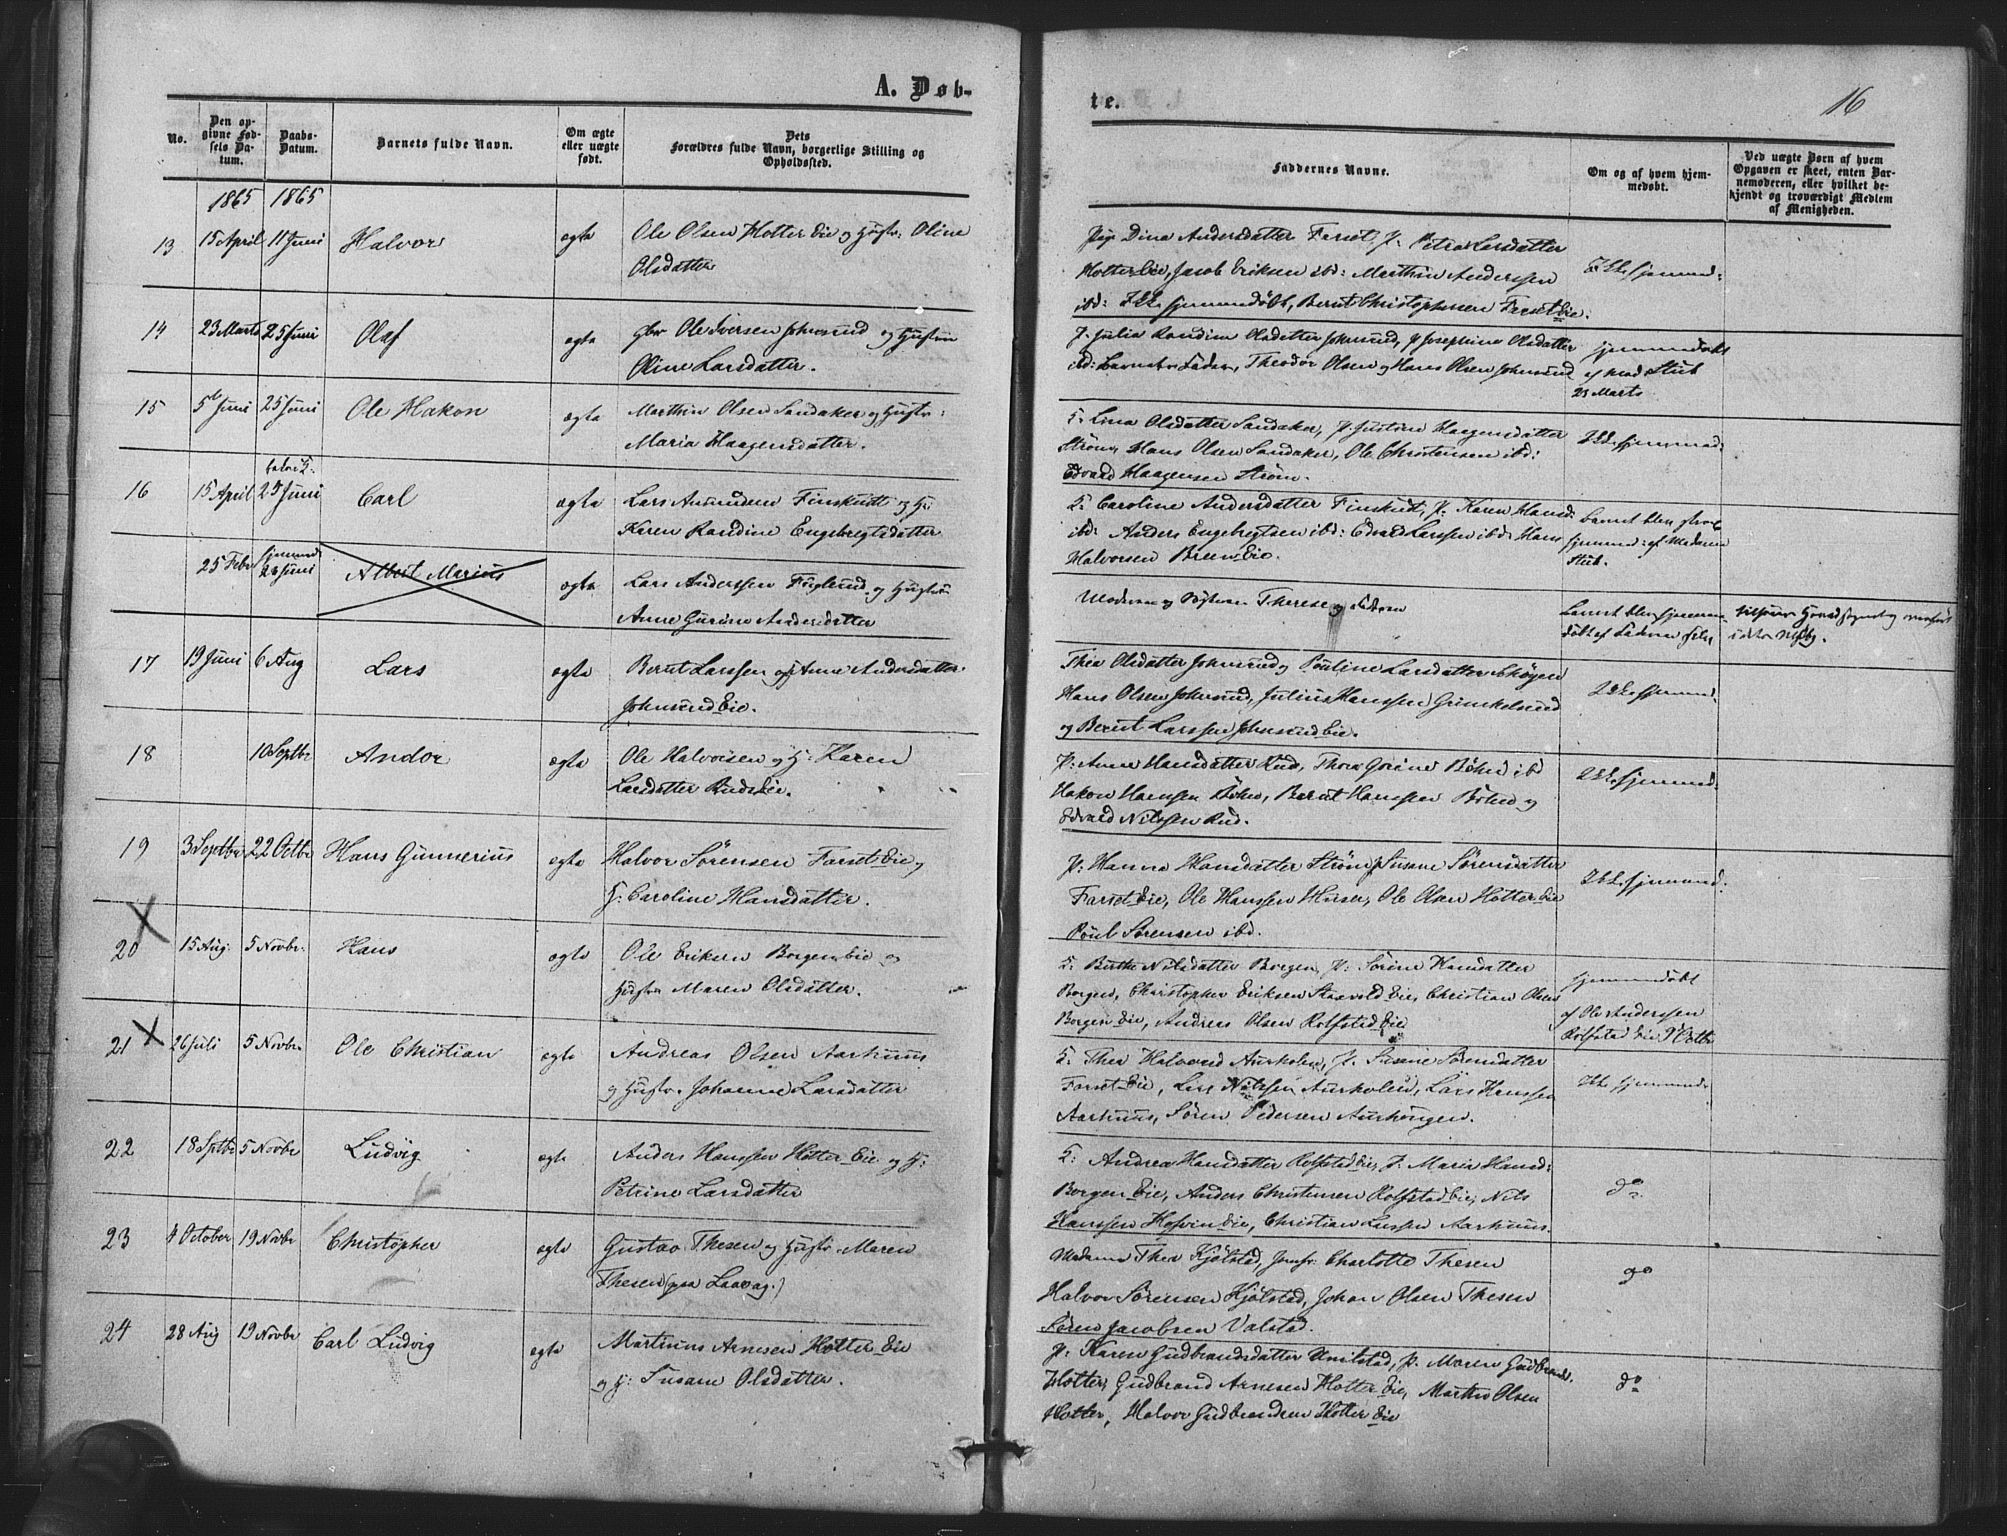 A. Døb-
te.
16
No.
Den opgivne Fødsels Datum.
Daabs-Datum.
Barnets fulde Navn.
Om ægte eller uægte født.
Dets Forældres fulde Navn, borgerlige Stilling og Opholdssted.
Faddernes Navne.
Om og af hvem hjemmedøbt.
Ved uægte Børn af hvem Opgaven er skeet, enten Barnemoderen, eller hvilket bekjendt og troværdigt Medlem af Menigheden.
1865 1865
13 15 April 11 Juni Halvor ægte Ole Olsen Hotter Eie og Hustr: Oline
Olsdatter
Pige Dina Andersdatter Farset, P. Petra Larsdatter
Hotter Eie, Jacob Eriksen ibd: Marthin Anderssen
ibd: Ikke hjemmedøbt, Bernt Christophersen Farset Eie.
Ikke hjemmed:
14 23 Marts 25 Juni Olaf ægte Gbr Ole Iversen Johnsrud og Hustru
Oline Larsdatter.
P. Julia Randine Olsdatter Johnsrud, P Josephine Olsdatter
ibd: Barnets Fader, Theodor Olsen og Hans Olsen Johnsrud
hjemmedøbt
af Mad. Stub
23 Marts
15 5te Juni 25 Juni Ole Hakon ægte Marthin Olsen Sandaker og Hustr:
Maria Haagensdatter.
K. Lina Olsdatter Sandaker, P. Justine Haagensdatter
Strøm, Hans Olsen Sandaker, Ole Christensen ibd:
Edvard Haagensen Strøm.
Ikke hjemmed:
16 15 April 25 Juni Carl ægte Lars Amundsen Finskudt og H:
Karen Randine Engebregtsdatter
K: Caroline Andersdatter Finskudt, P. Karen Hansd:
ibd: Anders Engebregtsen ibd: Edvard Larssen ibd: Hans
Halvorsen Bruun Eie.
Barnet blev strax
hjemmed: af Madame
Stub.
25 Febr hjemmed: 28 Juni Albert Marius ægte Lars Anderssen Fuglerud og Hustru
Anne Gurine Andersdatter
Moderen og Therese og Faderen
Barnet blev hjemme
døbt af Faderen selv
17 19 Juni 6 Aug Lars ægte Bernt Larssen og Anne Andersdatter
Johnsrud Eie.
Thea Olsdatter Johnsrud og Pouline Larsdatter Skøyen
Hans Olsen Johnsrud, Julius Hanssen Grinkelsrud
og Bernt Larssen Johnsrud Eie.
Ikke hjemmed.
18 10 Septbr Andor ægte Ole Halvorsen og H: Karen
Larsdatter Ruds Eie.
P: Anne Hansdatter Rud, Thora Gorine Bøhn ibd
Hakon Hansen Bøhn, Bernt Hanssen Bøhn og
Edvard Nilssen Rud.
Ikke hjemmed.
19 3 Septbr 22 Octbr Hans Gunnerius ægte Halvor Sørensen Farset Eie og
H: Caroline Hansdatter.
P: Hanna Hansdatter Strøm, P Susane Sørensdatter
Farset Eie, Ole Hanssen Huser, Ole Olsen Hotter Eie
Poul Sørensen ibd.
Ikke hjemmed.
20 15 Aug. 5 Novbr. Hans ægte Ole Eriksen Borgen Eie og
Hustru Maren Olsdatter.
K. Birthe Nilsdatter Borgen, P: Sørine Hansdatter
Borgen, Christopher Eriksen Eie, Christian Olsen
Borgen Eie, Andreas Olsen Rolfstad Eie
hjemmedøbt
af Ole Anderssen
Rolfstad Eie Octbr
21 26 Juli 5 Novbr. Ole Christian ægte Andreas Olsen Aarhuus
og Hustr. Johanne Larsdatter
K. Thea Halvorsd Aurkolen, P. Susane Sørensdatter
Farset Eie, Lars Nilssen Aurkolen, Lars Hanssen
Aarhuus, Søren Pedersen Aurhougen.
Ikke hjemmed:
22 18 Septbr 5 Novbr Ludvig ægte Anders Hanssen Hotter Eie og H:
Petrine Larsdatter
K: Andrea Hansdatter Rolfstad Eie, P. Maria Hansd:
Borgen Eie, Anders Christensen Rolfstad Eie, Nils
Hanssen Hofvin Eie, Christian Larssen Aarhuus.
do
23 4 October 19 Novbr Christopher ægte Gustav Thesen og Hustr. Maren
Thesen (paa Laavag.)
Madame Thea Kjølstad, Jomfr. Charlotte Thesen
Halvor Sørensen Kjølstad, Johan Olsen Thesen
Søren Jacobsen Valstad.
do
24 28 Aug 19 Novbr Carl Ludvig ægte Martinus Arnesen Hotter Eie
og H: Susane Olsdatter.
P. Karen Gudbrandsdatter P. Maren Gudbrands.
Hotter, Gudbrand Arnesen Hotter Eie, Martin Olsen
Hotter, Halvor Gudbrandsen Hotter Eie
do